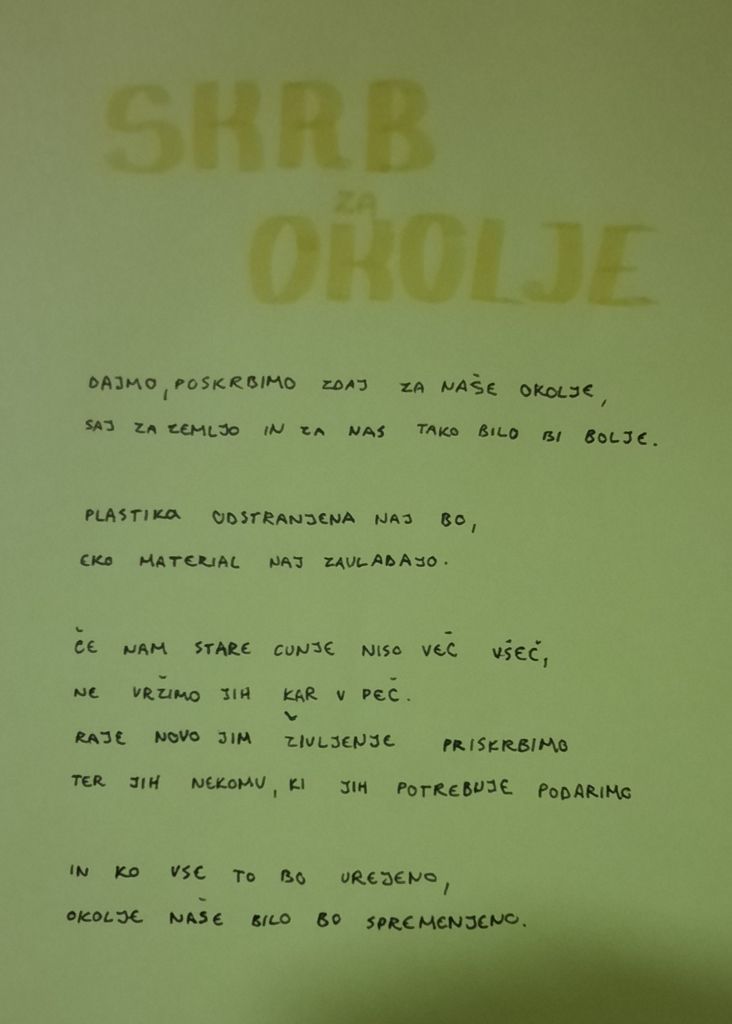 SKRB
ZA
OKOLJE
DAJMO, POSKRBIMO ZDAJ ZA NAŠE OKOLJE,
SAJ ZA ZEMLJO IN ZA NAS TAKO BILO BI BOLJE.
PLASTIKA ODSTRANJENA NAJ BO,
EKO MATERIAL NAJ ZAVLADAJO.
ČE NAM STARE CUNJE NISO VEČ VŠEČ,
NE VRŽIMO JIH KAR V PEČ.
RAJE NOVO JIM ŽIVLJENJE PRISKRBIMO
TER JIH NEKOMU, KI JIH POTREBUJE PODARIMO
IN KO VSE TO BO UREJENO,
OKOLJE NAŠE BILO BO SPREMENJENO.